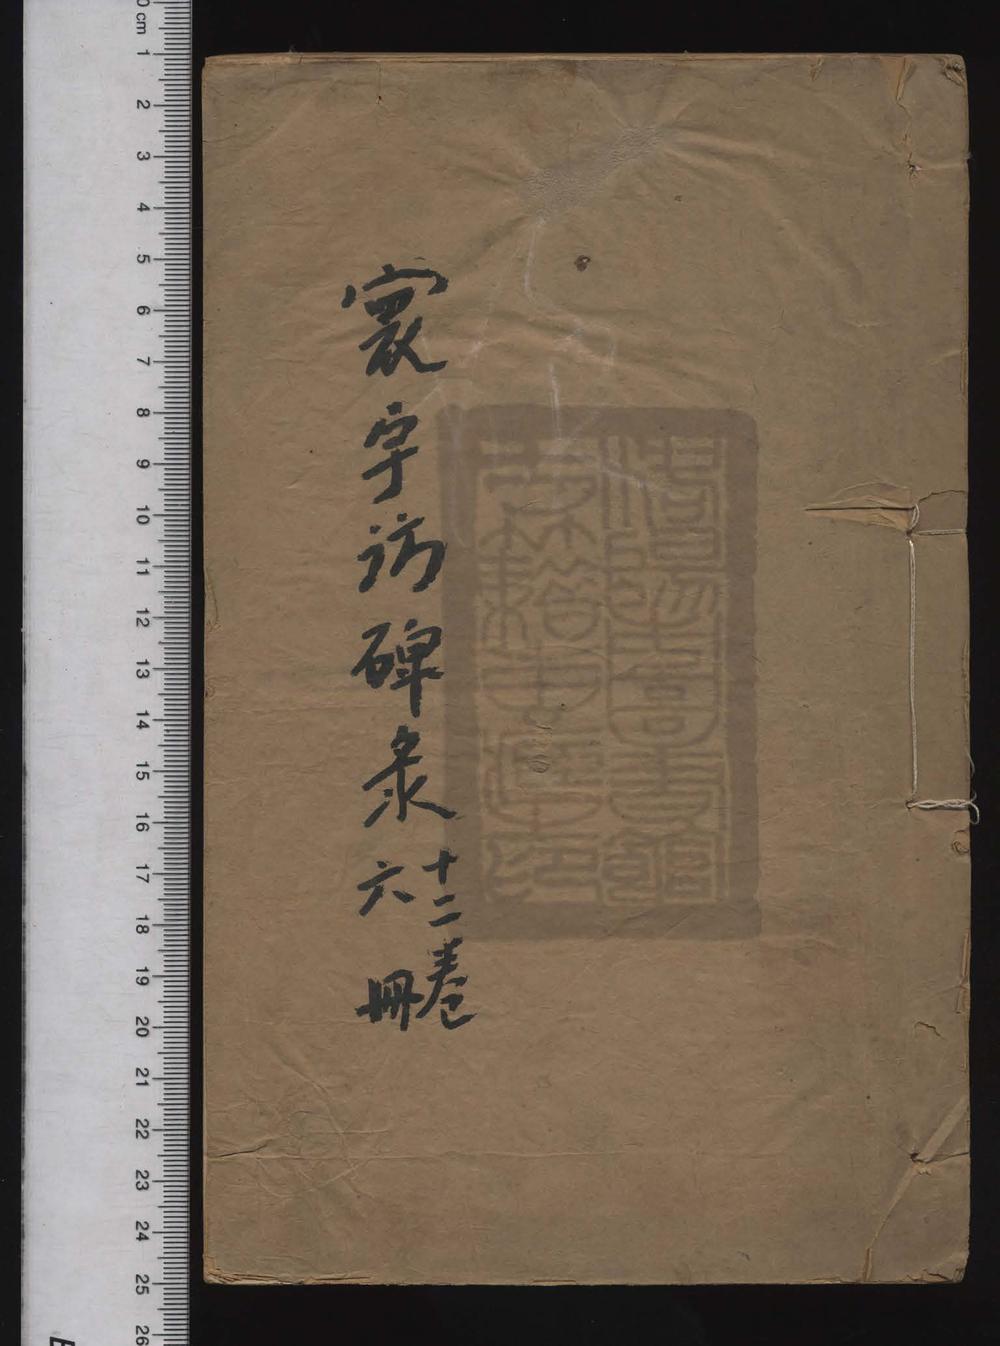 寰宇訪碑彔
十二卷
六冊
0 cm 1 2 3 4 5 6 7 8 9 10 11 12 13 14 15 16 17 18 19 20 21 22 23 24 25 26